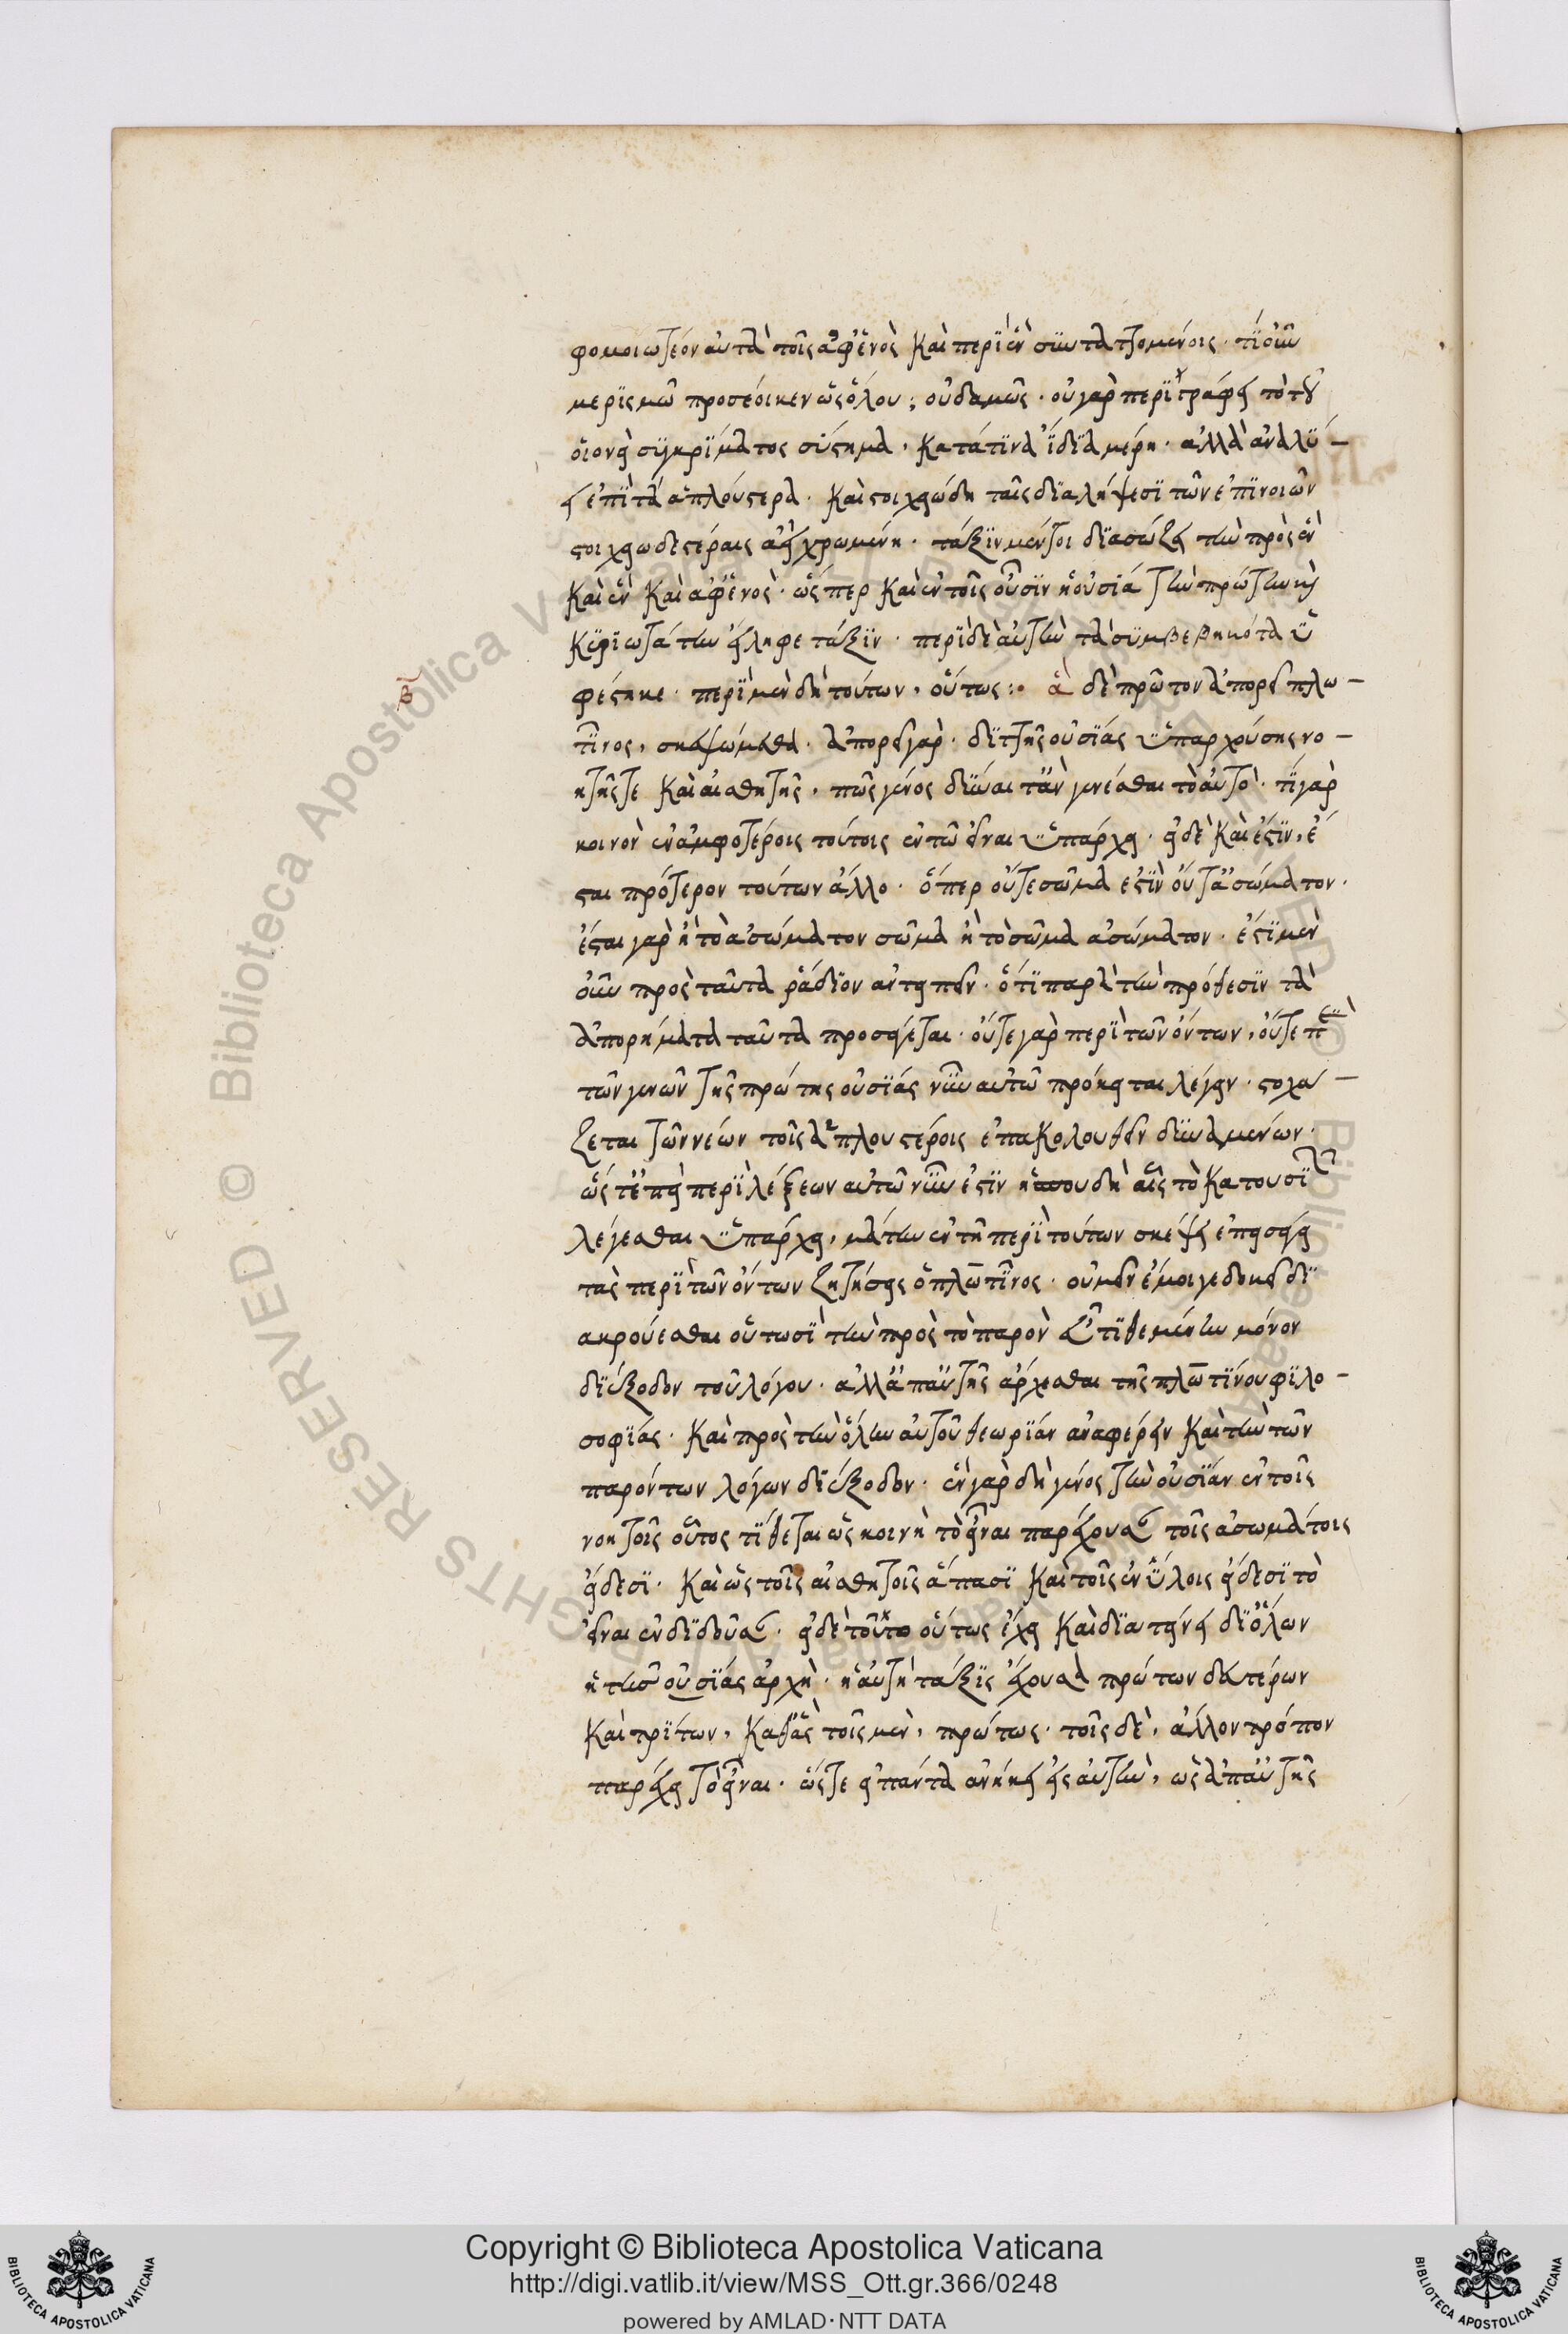 φομοιωτέον αὐτὰ τοῖς ἀφ' ἑνὸς καὶ περὶ ἓν συνταττομένοις. τί οὖν
μερισμῶ προσέοικεν ὡς ὅλου; οὐδαμῶς. οὐ γὰρ περιγράφει τὸ τοῦ
οἱονεὶ συγκρίματος σύστημα, κατά τινα ἴδια μέρη. ἀλλὰ ἀναλύ-
ει ἐπὶ τὰ ἁπλούστερα. καὶ στοιχειώδη ταῖς διαλήψεσι τῶν ἐπινοιῶν
στοιχειωδεστέραις ἀεὶ χρωμένη. τάξιν μέντοι διασώζει τὴν πρὸς ἓν
καὶ ἓν καὶ ἀφ' ἑνὸς. ὥσπερ καὶ ἐν τοῖς οὖσιν ἡ οὐσία τὴν πρώτην καὶ
κυριωτάτην εἴληφε τάξιν. περὶ δὲ αὐτὴν τὰ συμβεβηκότα ὑ
φέστηκε. περὶ μὲν δὴ τούτων, οὕτως:
β ἃ δὲ πρῶτον ἀπορεῖ πλω-
τῖνος, σκεψώμεθα. ἀπορεῖ γὰρ. διττῆς οὐσίας ὑπαρχούσης νο-
ητῆς τε καὶ αἰσθητῆς, πῶς γένος δύναιτ' ἂν γενέσθαι τὸ αὐτὸ. τί γὰρ
κοινὸν ἐν ἀμφοτέροις τούτοις ἐν τῶ εἶναι ὑπάρχει. εἰ δὲ καὶ ἔστιν, ἔ
σται πρότερον τούτων ἄλλο. ὅπερ οὔτε σῶμα ἐστὶν οὔτ' ἀσώματον.
ἔσται γὰρ ἢ τὸ ἀσώματον σῶμα ἢ τὸ σῶμα ἀσώματον. ἔστι μὲν
οὖν πρὸς ταῦτα ῥάδιον ἀντειπεῖν. ὅτι παρὰ τὴν πρόθεσιν τὰ
ἀπορήματα ταῦτα προσῆκται. οὔτε γὰρ περὶ τῶν ὄντων, οὔτε περὶ
τῶν γενῶν τῆς πρώτης οὐσίας νῦν αὐτῶ πρόκειται λέγειν. στοχά-
ζεται τῶν νέων τοῖς ἁπλουστέροις ἐπακολουθεῖν δυναμένων.
ὥστ' ἐπεὶ περὶ λέξεων αὐτῶ νῦν ἐστὶν ἡ σπουδὴ αἷς τὸ κατ' οὐσίαν
λέγεσθαι ὑπάρχει, μάτην ἐν τῆ περὶ τούτων σκέψει ἐπεισάγει
τὰς περὶ τῶν ὄντων ζητήσεις ὁ πλωτῖνος. οὐ μὴν ἔμοιγε δοκεῖ δι
ακρούεσθαι οὑτωσὶ τὴν πρὸς τὸ παρὸν ἐντιθεμένην μόνον
διέξοδον τοῦ λόγου. ἀλλ' ἀπ' αὐτῆς ἄρχεσθαι τῆς πλωτίνου φιλο-
σοφίας. καὶ πρὸς τὴν ὅλην αὐτοῦ θεωρίαν ἀναφέρειν καὶ τὴν τῶν
παρόντων λόγων διέξοδον. ἓν γὰρ δὴ γένος τὴν οὐσίαν ἐν τοῖς
νοητοῖς οὗτος τίθεται ὡς κοινῆ τὸ εἶναι παρέχουσαν τοῖς ἀσωμάτοις
εἴδεσι. καὶ ὡς τοῖς αἰσθητοῖς ἅπασι καὶ τοῖς ἐνύλοις εἴδεσι τὸ
εἶναι ἐνδιδοῦσαν. εἰ δὲ τοῦτο οὕτως ἔχει καὶ διατείνει δι' ὅλων
ἡ τῆς οὐσίας ἀρχὴ. ἡ αὐτὴ τάξις ἔχουσα πρώτων δευτέρων
καὶ τρίτων, καθ' ἃς τοῖς μὲν, πρώτως. τοῖς δὲ, ἄλλον τρόπον
παρέχει τὸ εἶναι. ὥστε εἰ πάντα ἀνήκει εἰς αὐτὴν, ὡς ἀπ' αὐτῆς
Copyright © Biblioteca Apostolica Vaticana
http://digi.vatlib.it/view/MSS_Ott.gr.366/0248
powered by AMLAD·NTT DATA